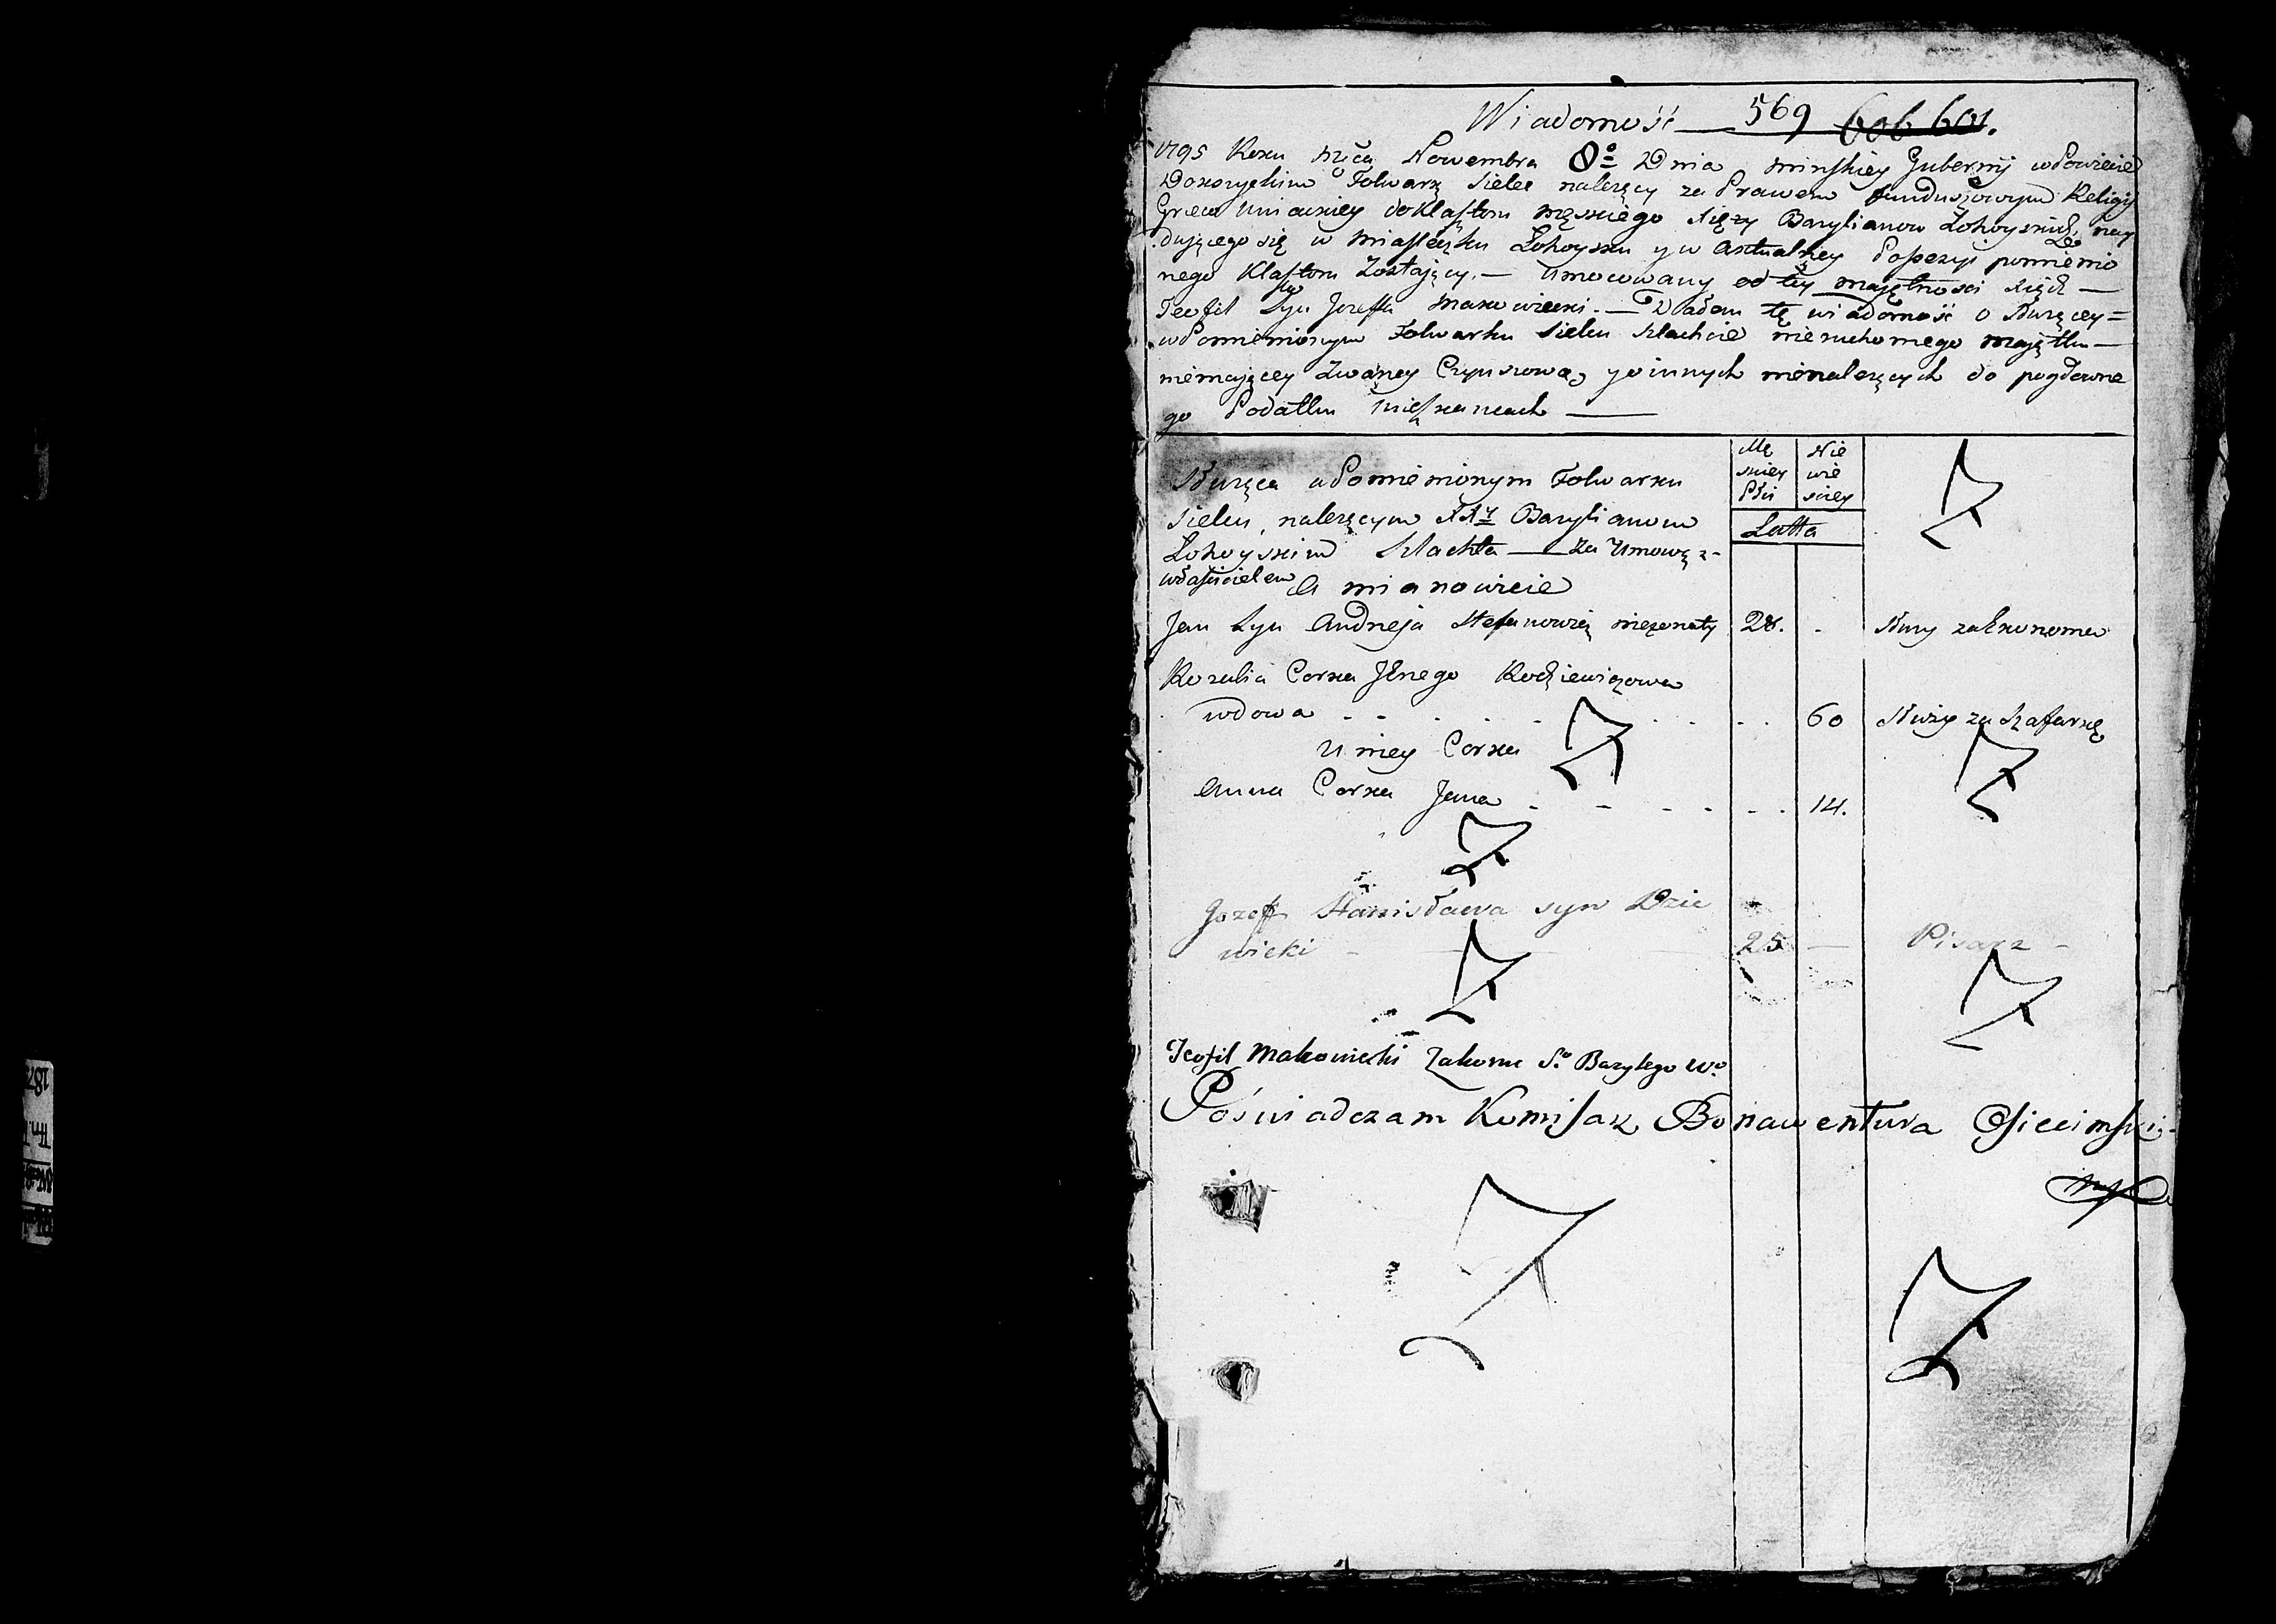 Wiadomość — 569 606 601.
1795 Roku Mẏca Nowembra 8º Dnia Minskiey Gubernij w Powiecie
Dokszyckim Folwark Sielec należący za Prawem funduszowym Religij
Greco Uniackiey do Klasztoru męskiego Xięży Bazylianow Łohoyskich nay
dującego się w Miasteczku Łohoysku y w Aktualney Possesyi pomienio
nego Klasztoru Zostający. — Umocowany od tey majętnosci Xiądz —
Teofil Syn Jozefa Makowiecki. — Podałem tę wiadomość o Służącey =
w Pomienionym Folwarku Sielcu Szlachcie nieruchomego majątku —
niemającey Zwaney Czynszową, y o innych nienależących do pogłowne
go Podatku Mieszkancach —
Mę
skiey
Płci
Nie
wie
sciey
Latta
Służąca w Pomienionym Folwarku
Sielcu, należącym XXy Bazylianom
Łohoyskim Szlachta — za Umową z-
właścicielem A mianowicie
Jan Syn Andrzeja Stefanowicz nieżonaty 28. - Służy za Ekonoma
Rozalia Corka Jgnego Kodziewiczowa
wdowa - - - - - 60 Służy za Szafarkę
U niey Corka
Anna Corka Jana - - - - 14.
Jozeff Stanisława syn Dzie
wicki - 25 — Pisarz -
Teofil Makowiecki Zakonu S.º Bazylego W.º
Poświadczam Komisarz Bonawentura Osiecimski
mp